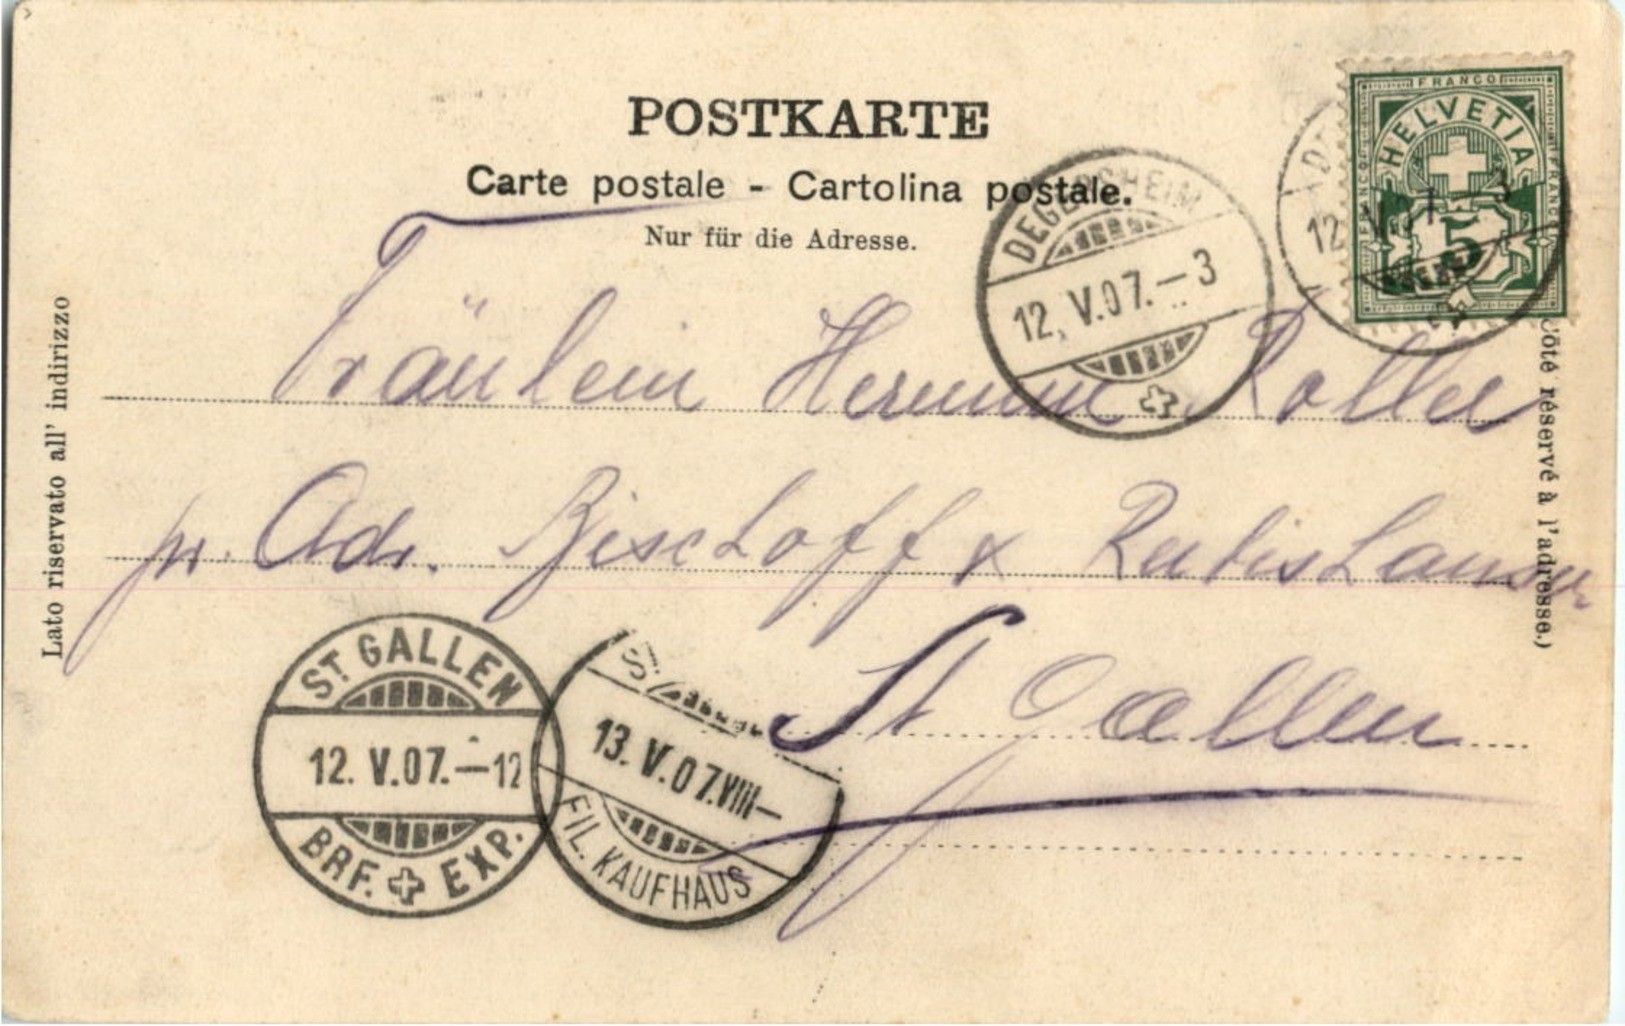 POSTKARTE
Carte postale - Cartolina postale.
Nur für die Adresse.
FRANCO
HELVETIA
FRANCO
FRANCO
5
DEGERSHEIM
12. V.07.—3
12. V. 07.—3
Lato riservato all' indirizzo
Côté réservé à l'adresse.)
Fräulein Hermine Koller
pr. Adr. Bischoff &
St Gallen
ST GALLEN
12. V.07.—12
BRF. EXP.
13. V.07.VIII—
FIL. KAUFHAUS